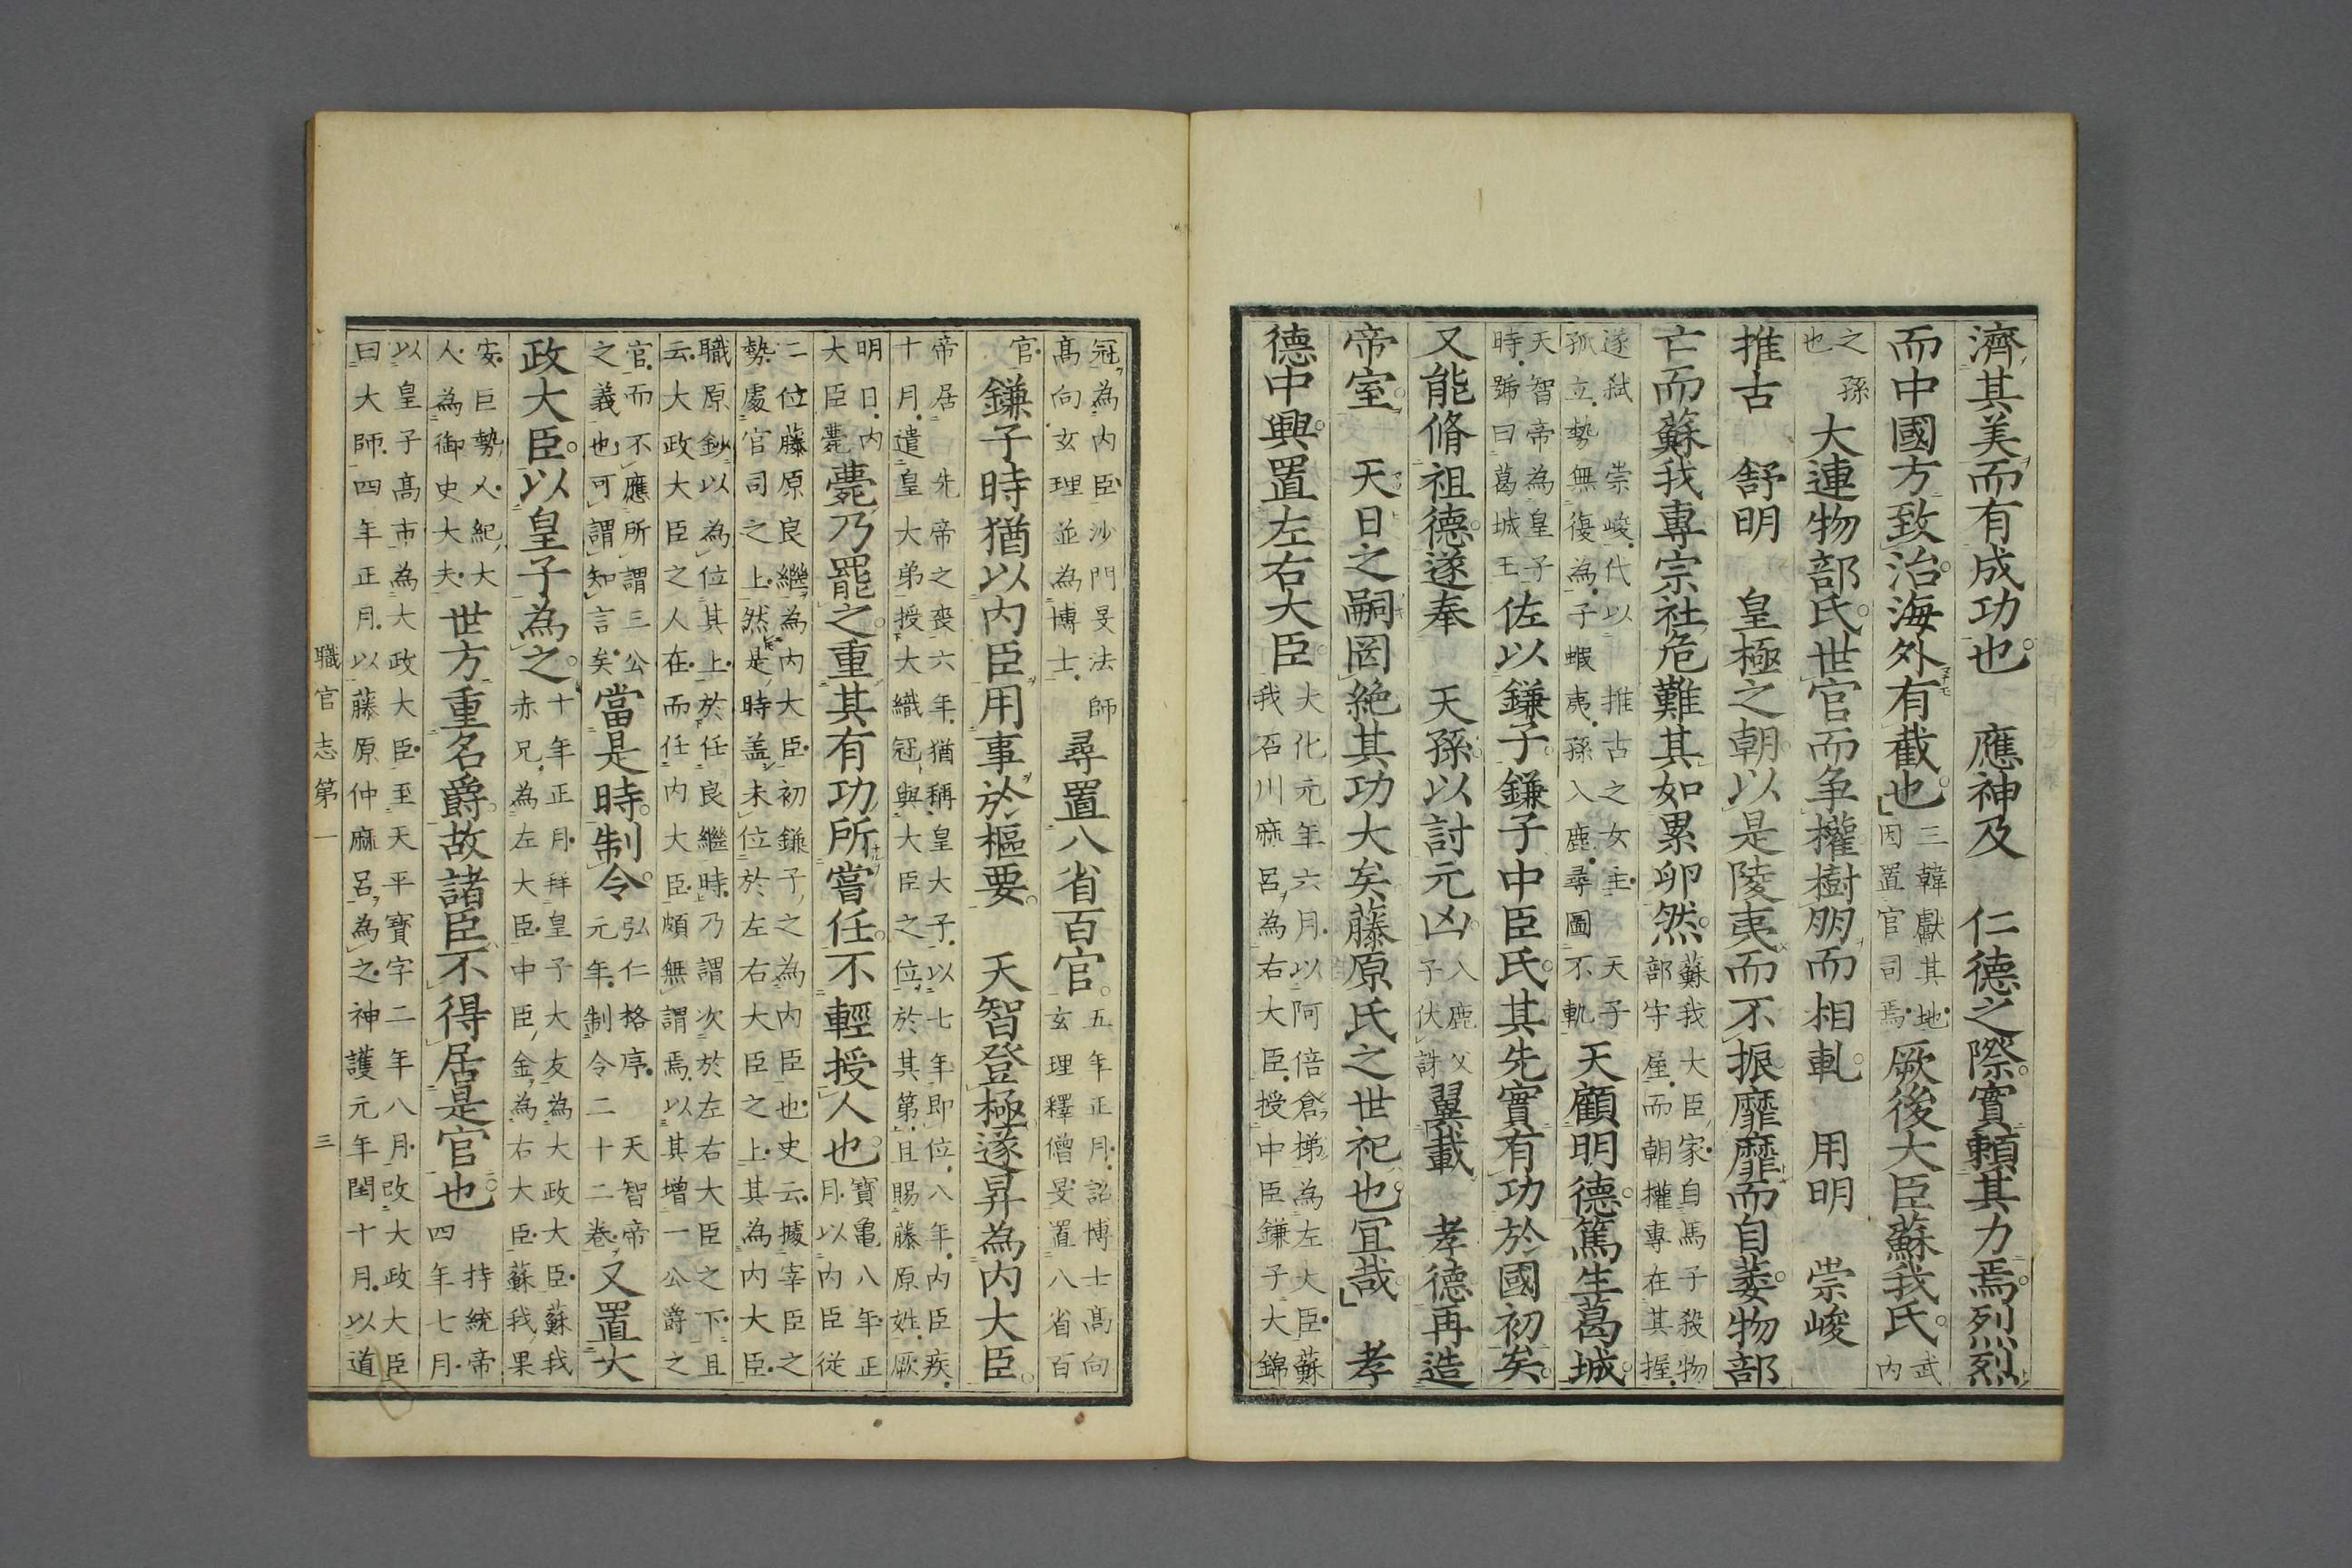 濟其美而有成功也　應神及　仁德之際實賴其力焉烈烈
而中國方致治海外有截也三韓獻其地因置官司焉厥後大臣蘇我氏武内
之孫也大連物部氏世官而爭權樹朋而相軋　用明　崇峻
推古　舒明　皇極之朝以是陵夷而不振靡靡而自萎物部
亡而蘇我專宗社危難其如累卵然蘇我大臣家自馬子殺物部守屋而朝權專在其握
遂弑　崇峻代以　推古之女主　天子孤立勢無復為子蝦夷孫入鹿尋圖不軌天顧明德篤生葛城
天智帝為皇子時號曰葛城王佐以鎌子鎌子中臣氏其先實有功於國初矣
又能脩祖德遂奉　天孫以討元凶入鹿父子伏誅翼載　孝德再造
帝室　天日之嗣罔絶其功大矣藤原氏之世祀也宜哉　孝
德中興置左右大臣大化元年六月以阿倍倉梯為左大臣蘇我石川麻呂為右大臣授中臣鎌子大錦
冠為内臣沙門旻法師高向玄理並為博士尋置八省百官五年正月詔博士高向玄理釋僧旻置八省百
官鎌子時猶以内臣用事於樞要　天智登極遂昇為内大臣
帝居　先帝之喪六年猶稱皇大子以七年即位八年内臣疾十月遣皇大弟授大織冠與大臣之位於其第且賜藤原姓厥
明日内大臣薨薨乃罷之重其有功所嘗任不輕授人也寶亀八年正月以内臣従
二位藤原良繼為内大臣初鎌子之為内臣也史云據宰臣之勢處官司之上然是時盖未位於左右大臣之上其為内大臣
職原鈔以為位其上於任良繼時乃謂次於左右大臣之下且云大政大臣之人在而任内大臣頗無謂焉以其増一公爵之
官而不應所謂三公之義也可謂知言矣當是時制令弘仁格序　天智帝元年制令二十二卷又置大
政大臣以皇子為之十年正月拜皇子大友為大政大臣蘇我赤兄為左大臣中臣金為右大臣蘇我果
安巨勢人紀大人為御史大夫世方重名爵故諸臣不得居是官也持統帝四年七月
以皇子高市為大政大臣至天平寶字二年八月改大政大臣曰大師四年正月以藤原仲麻呂為之神護元年閏十月以道
職官志第一　三